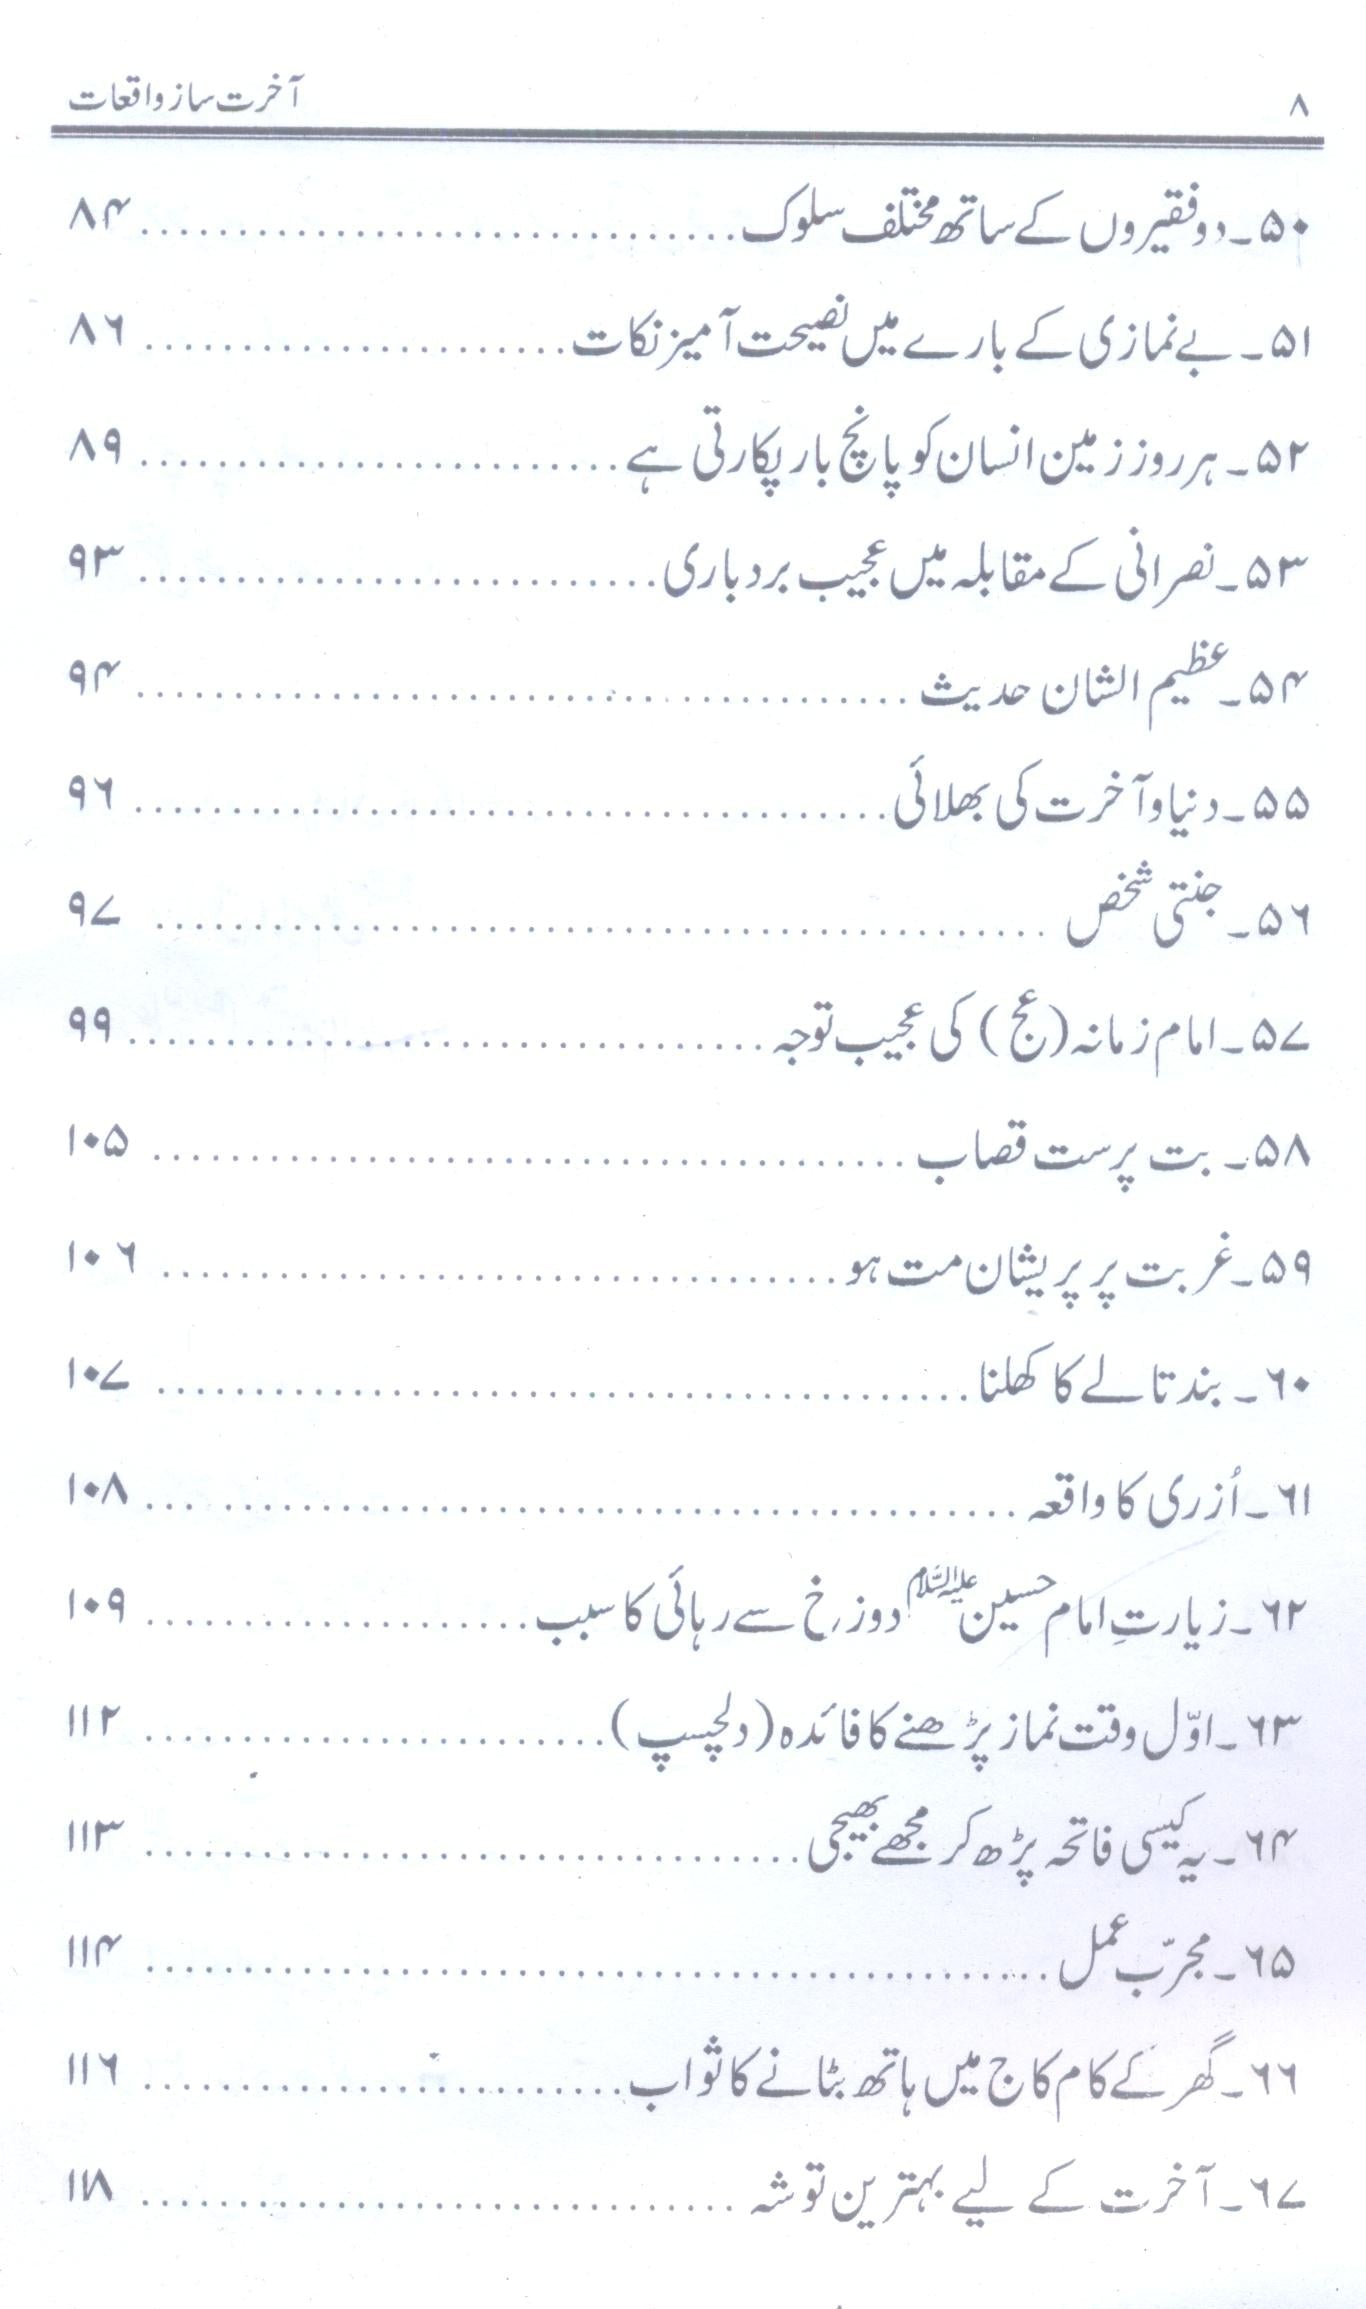 ۸ آخرت ساز واقعات
۵۰۔ دو فقیروں کے ساتھ مختلف سلوک ........ ۸۴
۵۱۔ بے نمازی کے بارے میں نصیحت آمیز نکات ........ ۸۶
۵۲۔ ہر روز زمین انسان کو پانچ بار پکارتی ہے ........ ۸۹
۵۳۔ نصرانی کے مقابلہ میں عجیب بردباری ........ ۹۳
۵۴۔ عظیم الشان حدیث ........ ۹۴
۵۵۔ دنیا و آخرت کی بھلائی ........ ۹۶
۵۶۔ جنتی شخص ........ ۹۷
۵۷۔ امام زمانہ (عج) کی عجیب توجہ ........ ۹۹
۵۸۔ بت پرست قصاب ........ ۱۰۵
۵۹۔ غربت پر پریشان مت ہو ........ ۱۰۶
۶۰۔ بند تالے کا کھلنا ........ ۱۰۷
۶۱۔ اُزری کا واقعہ ........ ۱۰۸
۶۲۔ زیارتِ امام حسین علیہ السلام دوزخ سے رہائی کا سبب ........ ۱۰۹
۶۳۔ اوّل وقت نماز پڑھنے کا فائدہ (دلچسپ) ........ ۱۱۲
۶۴۔ یہ کیسی فاتحہ پڑھ کر مجھے بھیجی ........ ۱۱۳
۶۵۔ مجرّب عمل ........ ۱۱۴
۶۶۔ گھر کے کام کاج میں ہاتھ بٹانے کا ثواب ........ ۱۱۶
۶۷۔ آخرت کے لیے بہترین توشہ ........ ۱۱۸